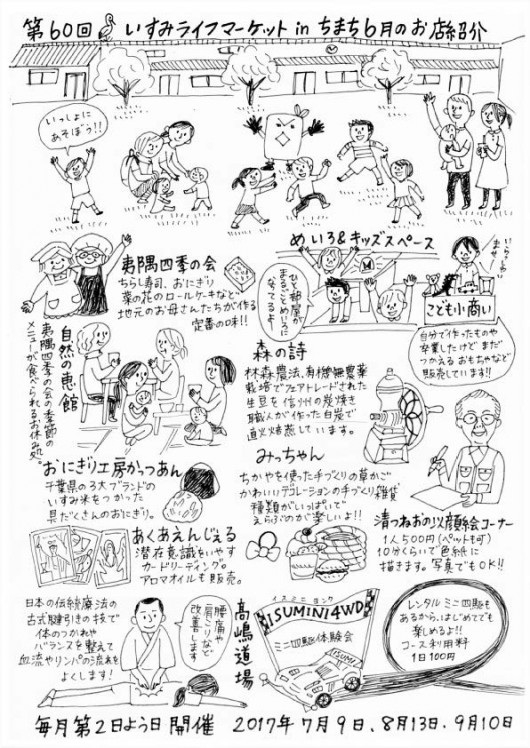 第60回 いすみライフマーケット in ちまち6月のお店紹介
いっしょに
あそぼう!!
夷隅四季の会
ちらし寿司、おにぎり
菜の花のロールケーキなど
地元のお母さんたちが作る
定番の味!!
めいろ&キッズスペース
ひと部屋が
まるごとめいろに
なってるよ
いらっしゃ
いませ
こども小商い
自分で作ったものや
卒業したけどまだ
つかえるおもちゃなど
販売しています!!
自然の恵館
夷隅四季の会の季節の
メニューが食べられるお休み処。
森の詩
林森農法、有機無農薬
栽培でフェアトレードされた
生豆を信州の炭焼き
職人が作った白炭で
直火焙煎しています。
おにぎり工房かっつあん
千葉県の3大ブランドの
いすみ米をつかった
具だくさんのおにぎり。
みっちゃん
ちがやを使った手づくりの草かご
かわいいデコレーションの手づくり雑貨
種類がいっぱいで
えらぶのが楽しいよ!!
清つねおの似顔絵コーナー
1人500円(ペットも可)
10分くらいで色紙に
描きます。写真でもOK!!
あくあえんじぇる
潜在意識をいやす
カードリーディング。
アロマオイルも販売。
日本の伝統療法の
古式腱引きの技で
体のつかれや
バランスを整えて
血流やリンパの流れを
よくします!
腰痛や
肩こりなど
改善します
高嶋道場
イスミニヨンク
ISUMINI4WD
ミニ四駆体験会
ISUMI
レンタルミニ四駆も
あるから、はじめてでも
楽しめるよ!!
コース利用料
1日100円
毎月第2日よう日開催 2017年7月9日、8月13日、9月10日